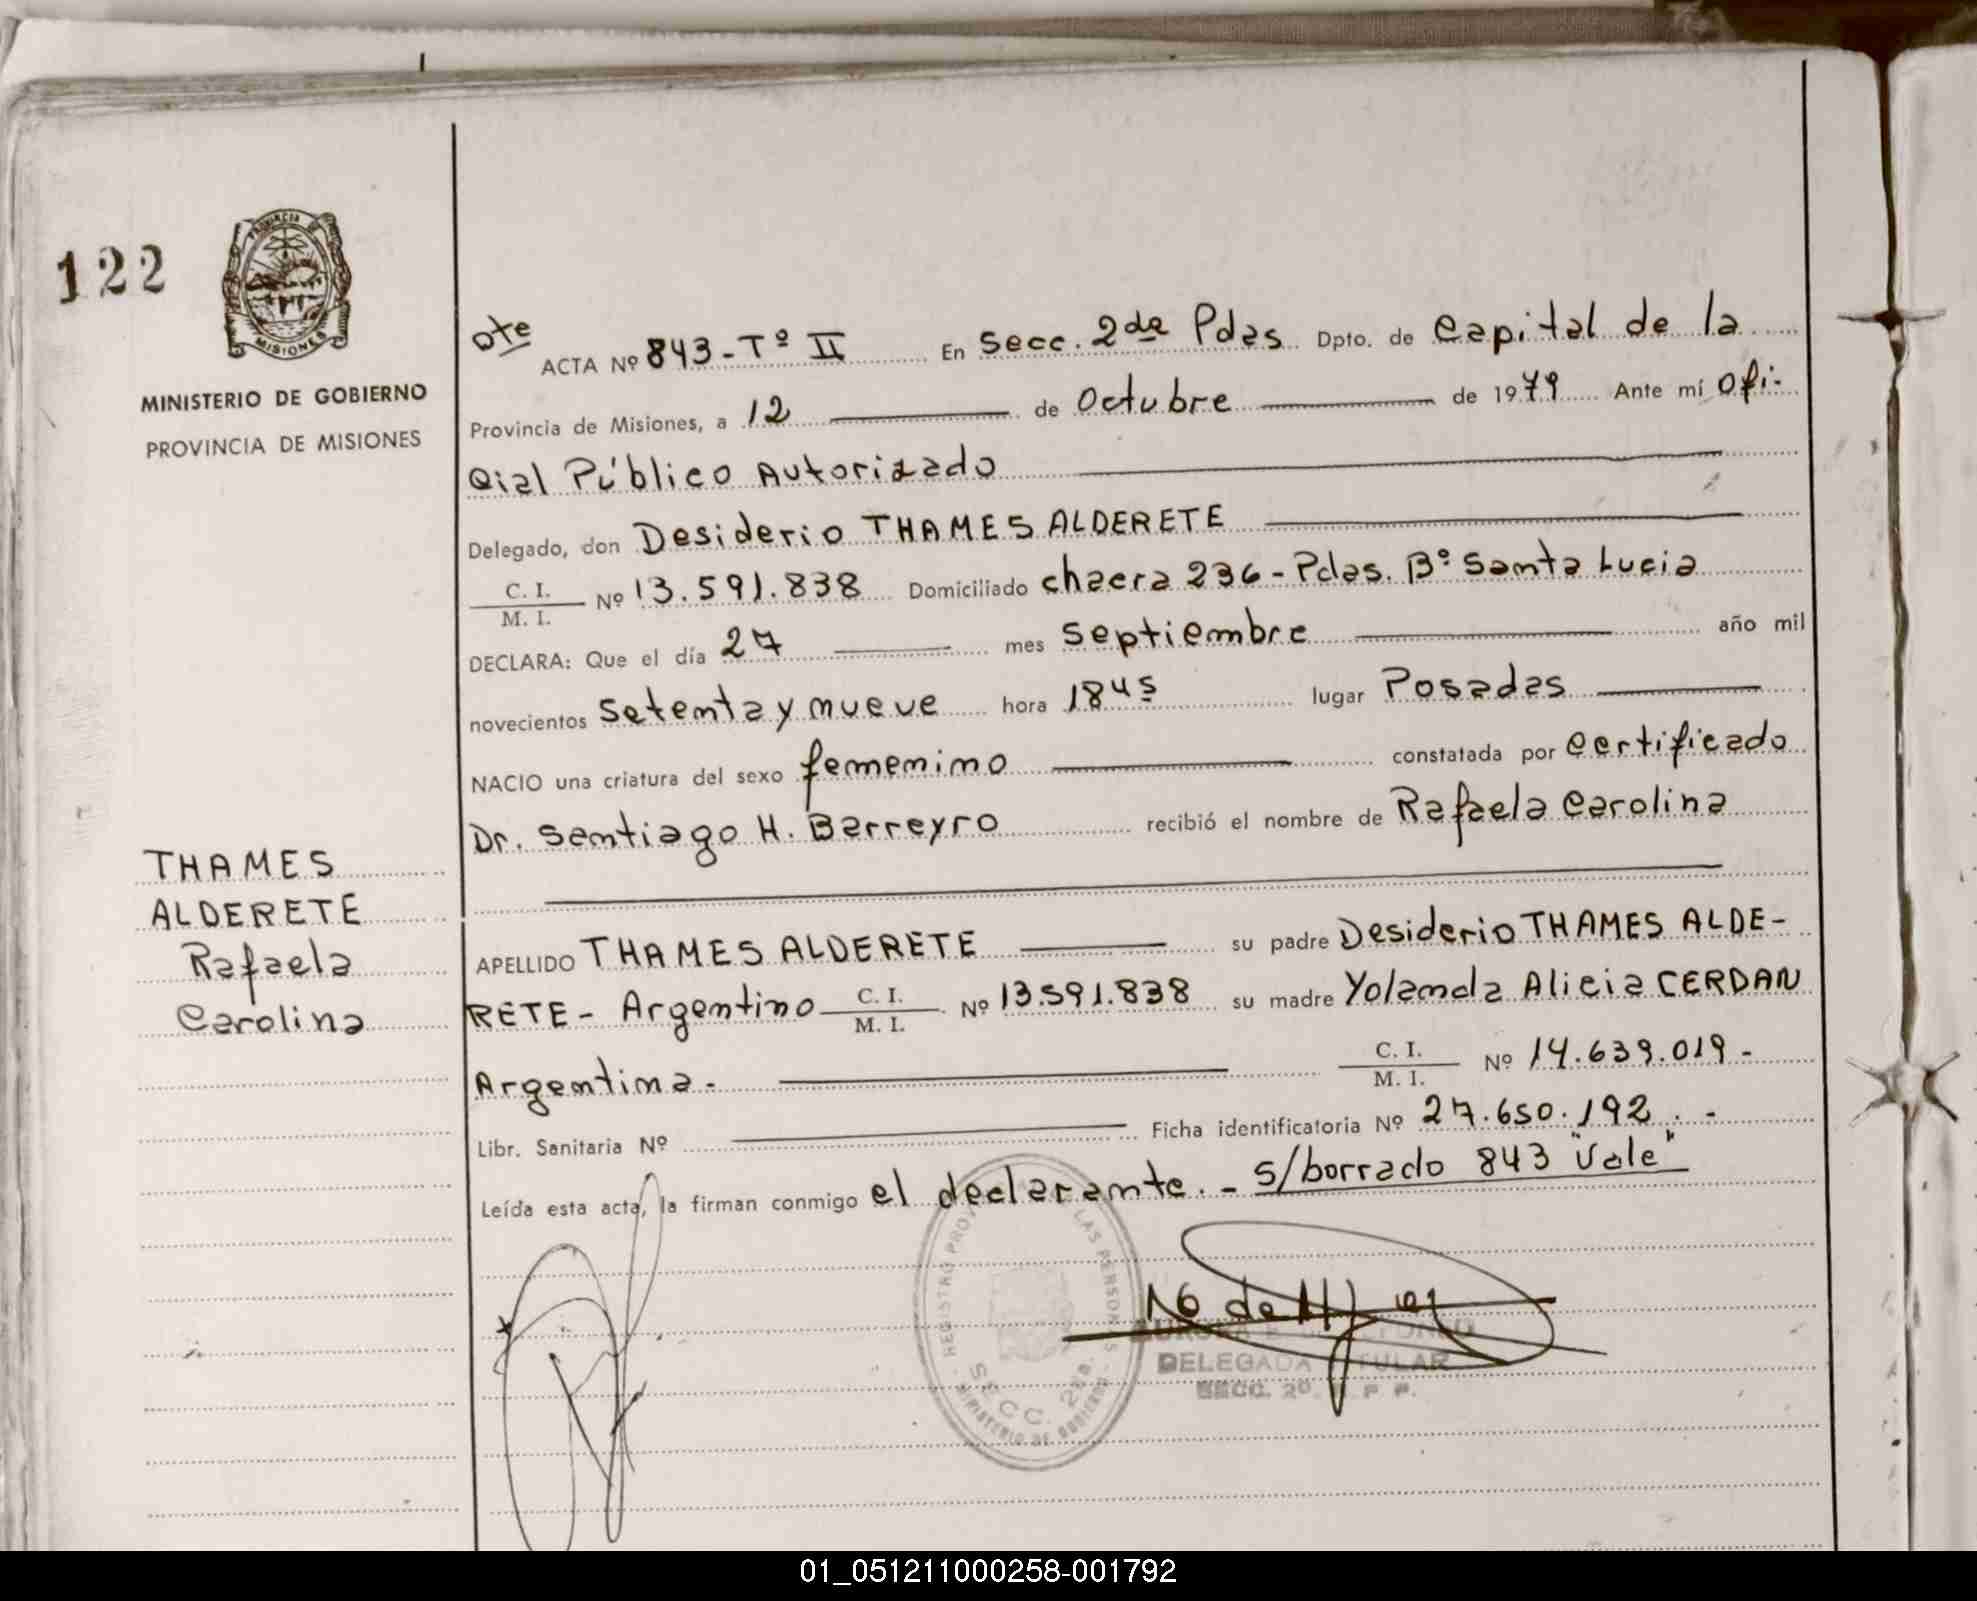 122
PROVINCIA DE
MISIONES
MINISTERIO DE GOBIERNO
PROVINCIA DE MISIONES
Dte
ACTA Nº 843-Tº II En Secc. 2da Pdas Dpto. de Capital de la
Provincia de Misiones, a 12 de Octubre de 1979 Ante mí Ofi-
cial Público Autorizado
Delegado, don Desiderio THAMES ALDERETE
C. I.
M. I. Nº 13.591.838 Domiciliado chacra 236-Pdas. Bº Santa Lucia
DECLARA: Que el día 27 mes septiembre año mil
novecientos setenta y nueve hora 18 45 lugar Posadas
NACIO una criatura del sexo femenino constatada por certificado
Dr. Santiago H. Barreyro recibió el nombre de Rafaela Carolina
THAMES
ALDERETE
Rafaela
Carolina
APELLIDO THAMES ALDERETE su padre Desiderio THAMES ALDE-
RETE - Argentino C. I.
M. I. Nº 13.591.838 su madre Yolanda Alicia CERDAN
Argentina. C. I.
M. I. Nº 14.639.019-
Libr. Sanitaria Nº Ficha identificatoria Nº 27.650.192.-
Leída esta acta, la firman conmigo el declarante.- s/borrado 843 "Vale"
REGISTRO LAS PERSONAS
SECC. 2da.
MINISTERIO DE GOBIERNO
DELEGADA TITULAR
SECC. 2º
01_051211000258-001792